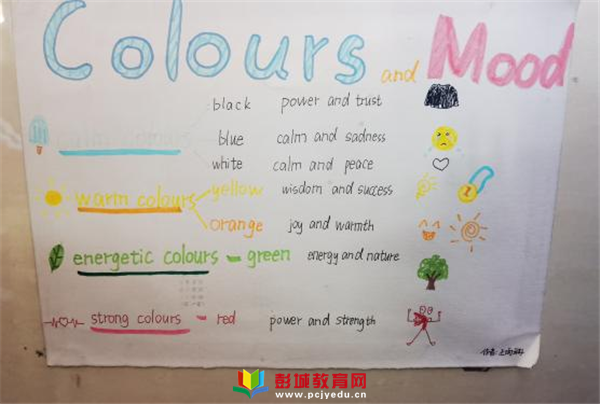 Colours and Mood
black power and trust
blue calm and sadness
white calm and peace
warm colours yellow wisdom and success
orange joy and warmth
energetic colours - green energy and nature
strong colours - red power and strength
彭城教育网
www.pcjyedu.cn